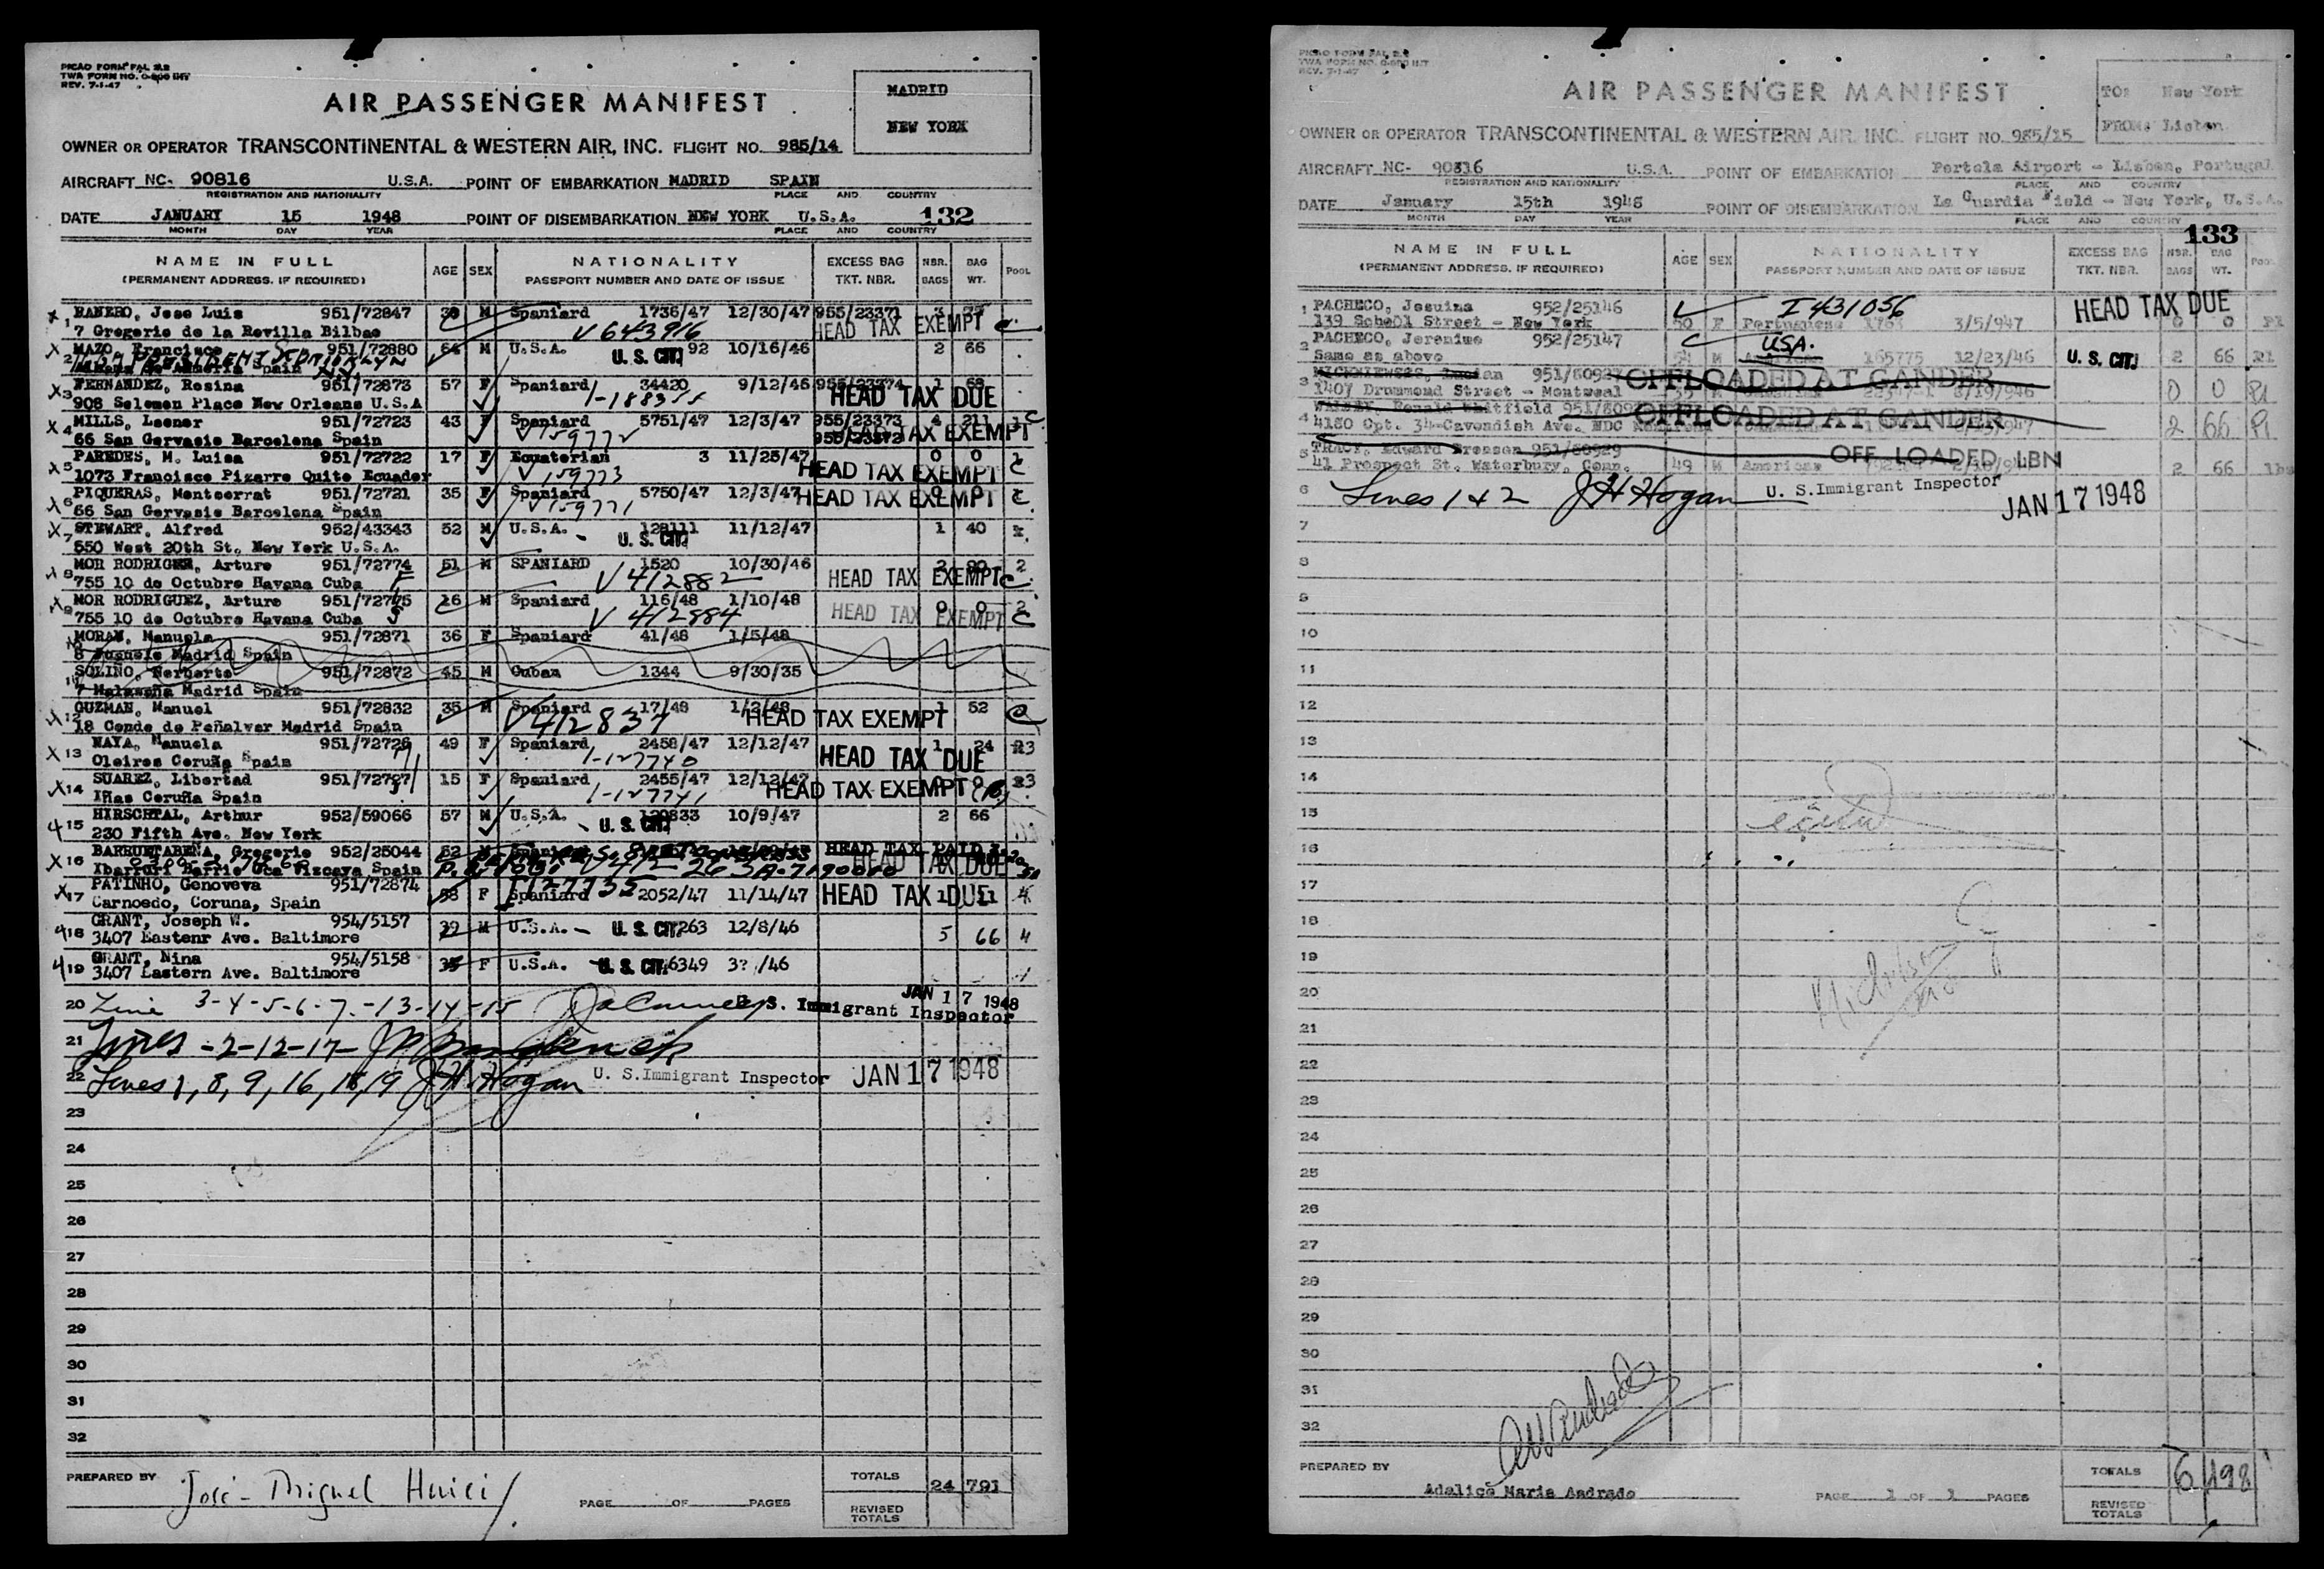 PICAO FORM PAL 2.2
TWA FORM NO. O-600 INT
REV. 7-1-47
AIR PASSENGER MANIFEST
MADRID
NEW YORK
OWNER OR OPERATOR TRANSCONTINENTAL & WESTERN AIR, INC. FLIGHT NO. 985/14
AIRCRAFT NC- 90816 U.S.A. POINT OF EMBARKATION MADRID SPAIN
REGISTRATION AND NATIONALITY PLACE AND COUNTRY
DATE JANUARY 15 1948 POINT OF DISEMBARKATION NEW YORK U.S.A. 132
MONTH DAY YEAR PLACE AND COUNTRY
NAME IN FULL AGE SEX NATIONALITY EXCESS BAG NBR. BAG POOL
(PERMANENT ADDRESS, IF REQUIRED) PASSPORT NUMBER AND DATE OF ISSUE TKT. NBR. BAGS WT.
X 1 RANERO, Jose Luis 951/72847 M Spaniard 1736/47 12/30/47 955/23371 3
7 Gregorio de la Revilla Bilbao V 643916 HEAD TAX EXEMPT C
X 2 MAZO, Francisco 951/72880 64 M U.S.A. U.S. CIT. 92 10/16/46 2 66
Spain
X 3 FERNANDEZ, Rosina 951/72873 57 F Spaniard 34420 9/12/46 955/23374 1 68
908 Solomon Place New Orleans U.S.A HEAD TAX DUE
X 4 MILLS, Leonor 951/72723 43 F Spaniard 5751/47 12/3/47 955/23373 4 211
66 San Gervasio Barcelona Spain V 159772 955/23372 HEAD TAX EXEMPT C
X 5 PAREDES, M. Luisa 951/72722 17 F Ecuatorian 3 11/25/47 0 0
1073 Francisco Pizarro Quito Ecuador V 159773 HEAD TAX EXEMPT C
X 6 PIQUERAS, Montserrat 951/72721 35 F Spaniard 5750/47 12/3/47 HEAD TAX EXEMPT 0 0 C
66 San Gervasio Barcelona Spain V 159771
X 7 STEWART, Alfred 952/43343 52 M U.S.A. 128111 11/12/47 1 40
550 West 20th St. New York U.S.A. U.S. CIT.
X 8 MOR RODRIGUEZ, Arturo 951/72774 51 M SPANIARD 1520 10/30/46 2 2
755 10 de Octubre Havana Cuba F V 412882 HEAD TAX EXEMPT C
X 9 MOR RODRIGUEZ, Arturo 951/72775 16 M Spaniard 116/48 1/10/48 0 0 2
755 10 de Octubre Havana Cuba S V 412884 HEAD TAX EXEMPT C
10 MORAN, Manuela 951/72871 36 F Spaniard 41/48 1/5/48
Madrid Spain
11 SOLIÑO, Norberto 951/72872 45 M Cuban 1344 9/30/35
7 Malasaña Madrid Spain
X 12 GUZMAN, Manuel 951/72832 35 M Spaniard 17/48 1/2/48 1 52
18 Conde de Peñalver Madrid Spain V 412837 HEAD TAX EXEMPT C
X 13 NAYA, Manuela 951/72726 49 F Spaniard 2458/47 12/12/47 1 24
Oleiros Coruña Spain I-127740 HEAD TAX DUE
X 14 SUAREZ, Libertad 951/72727 15 F Spaniard 2455/47 12/12/47 0 0
Iñas Coruña Spain I-127741 HEAD TAX EXEMPT (16)
15 HIRSCHTAL, Arthur 952/59066 57 M U.S.A. 10/9/47 2 66
230 Fifth Ave. New York U.S. CIT.
X 16 BARRUETABEÑA, Gregorio 952/25044 52 M Spaniard HEAD TAX PAID
Ibarruri Barrio Oca Vizcaya Spain HEAD TAX DUE
X 17 PATINHO, Genoveva 951/72874 58 F Spaniard I127735 2052/47 11/14/47 HEAD TAX DUE 1 11 4
Carnoedo, Coruna, Spain
18 GRANT, Joseph W. 954/5157 39 M U.S.A. U.S. CIT. 263 12/8/46 5 66 4
3407 Eastenr Ave. Baltimore
19 GRANT, Nina 954/5158 35 F U.S.A. U.S. CIT. 6349 3? /46
3407 Eastern Ave. Baltimore
20 Line 3-4-5-6-7-13-14-15 U. S. Immigrant Inspector JAN 17 1948
21 Lines -2-12-17-
22 Lines 1, 8, 9, 16, 18, 19 J.H. Hogan U. S. Immigrant Inspector JAN 17 1948
23
24
25
26
27
28
29
30
31
32
PREPARED BY José-Miguel Huici TOTALS 24 791
PAGE OF PAGES REVISED TOTALS
PICAO FORM PAL 2.2
TWA FORM NO. O-600 INT
REV. 7-1-47
AIR PASSENGER MANIFEST
TO: New York
FROM: Lisbon
OWNER OR OPERATOR TRANSCONTINENTAL & WESTERN AIR, INC. FLIGHT NO. 985/15
AIRCRAFT NC- 90816 U.S.A. POINT OF EMBARKATION Portela Airport - Lisbon, Portugal
REGISTRATION AND NATIONALITY PLACE AND COUNTRY
DATE January 15th 1948 POINT OF DISEMBARKATION La Guardia Field - New York, U.S.A.
MONTH DAY YEAR PLACE AND COUNTRY
133
NAME IN FULL AGE SEX NATIONALITY EXCESS BAG NBR. BAG POOL
(PERMANENT ADDRESS, IF REQUIRED) PASSPORT NUMBER AND DATE OF ISSUE TKT. NBR. BAGS WT.
1 PACHECO, Jesuina 952/25146 I431056 HEAD TAX DUE
139 School Street - New York 50 F Portuguese 1763 3/5/947 0 0 P1
2 PACHECO, Jeronimo 952/25147 USA.
Same as above 54 M American 165775 12/23/46 U.S. CIT. 2 66 P1
3 951/60927 OFFLOADED AT GANDER
1407 Drummond Street - Montreal 35 M 8/19/946 0 0 P1
4 Ronald Whitfield OFFLOADED AT GANDER
4180 Cpt. 34-Cavendish Ave. NDC 2 66 P1
5 TRACY, Edward 951/60929 OFF LOADED LBN
41 Prospect St. Waterbury, Conn. 49 M American 2 66
6 Lines 1 & 2 J H Hogan U. S. Immigrant Inspector JAN 17 1948
7
8
9
10
11
12
13
14
15
16
17
18
19
20
21
22
23
24
25
26
27
28
29
30
31
32
PREPARED BY Adalice Maria Andrade TOTALS 6 198
PAGE 1 OF 1 PAGES REVISED TOTALS